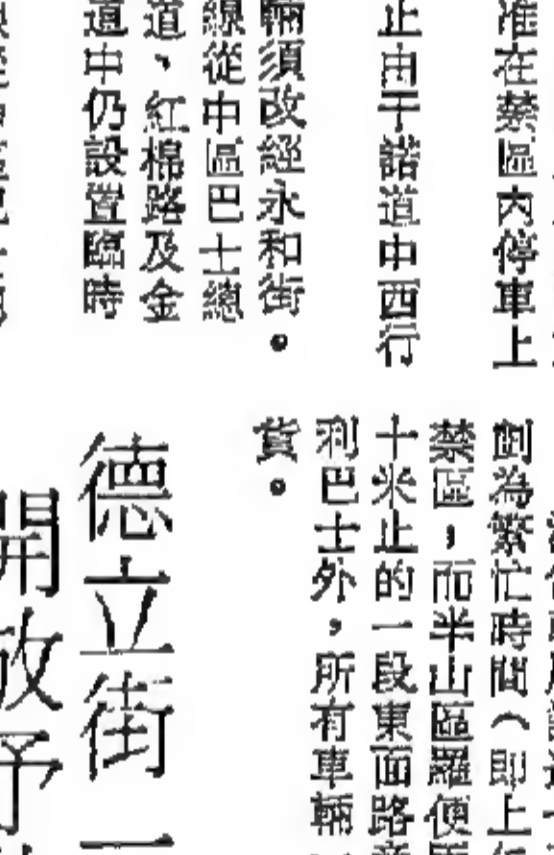 准在禁區內停車上
止由干諾道中西行
輛須改經永和街。
線從中區巴士總
道、紅棉路及金
道中仍設置臨時
劃為繁忙時間（即上
禁區，而半山區羅便
十米止的一段東面路
利巴士外，所有車輛
貨。
德立街一
開放予